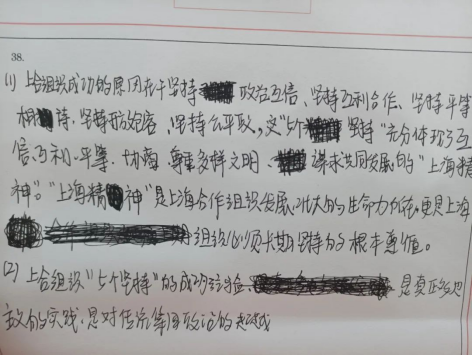 38.
(1) 上合组织成功的原因在于坚持政治互信、坚持互利合作、坚持平等
相待、坚持开放包容、坚持公平正义,这"5个坚持"充分体现了互
信、互利、平等、协商、尊重多样文明、谋求共同发展的"上海精
神"。"上海精神"是上海合作组织发展壮大的生命力所在,更是上海
组织必须长期坚持的根本遵循。
(2) 上合组织"5个坚持"的成功经验 是真正多边
主义的实践,是对传统等国政治的超越